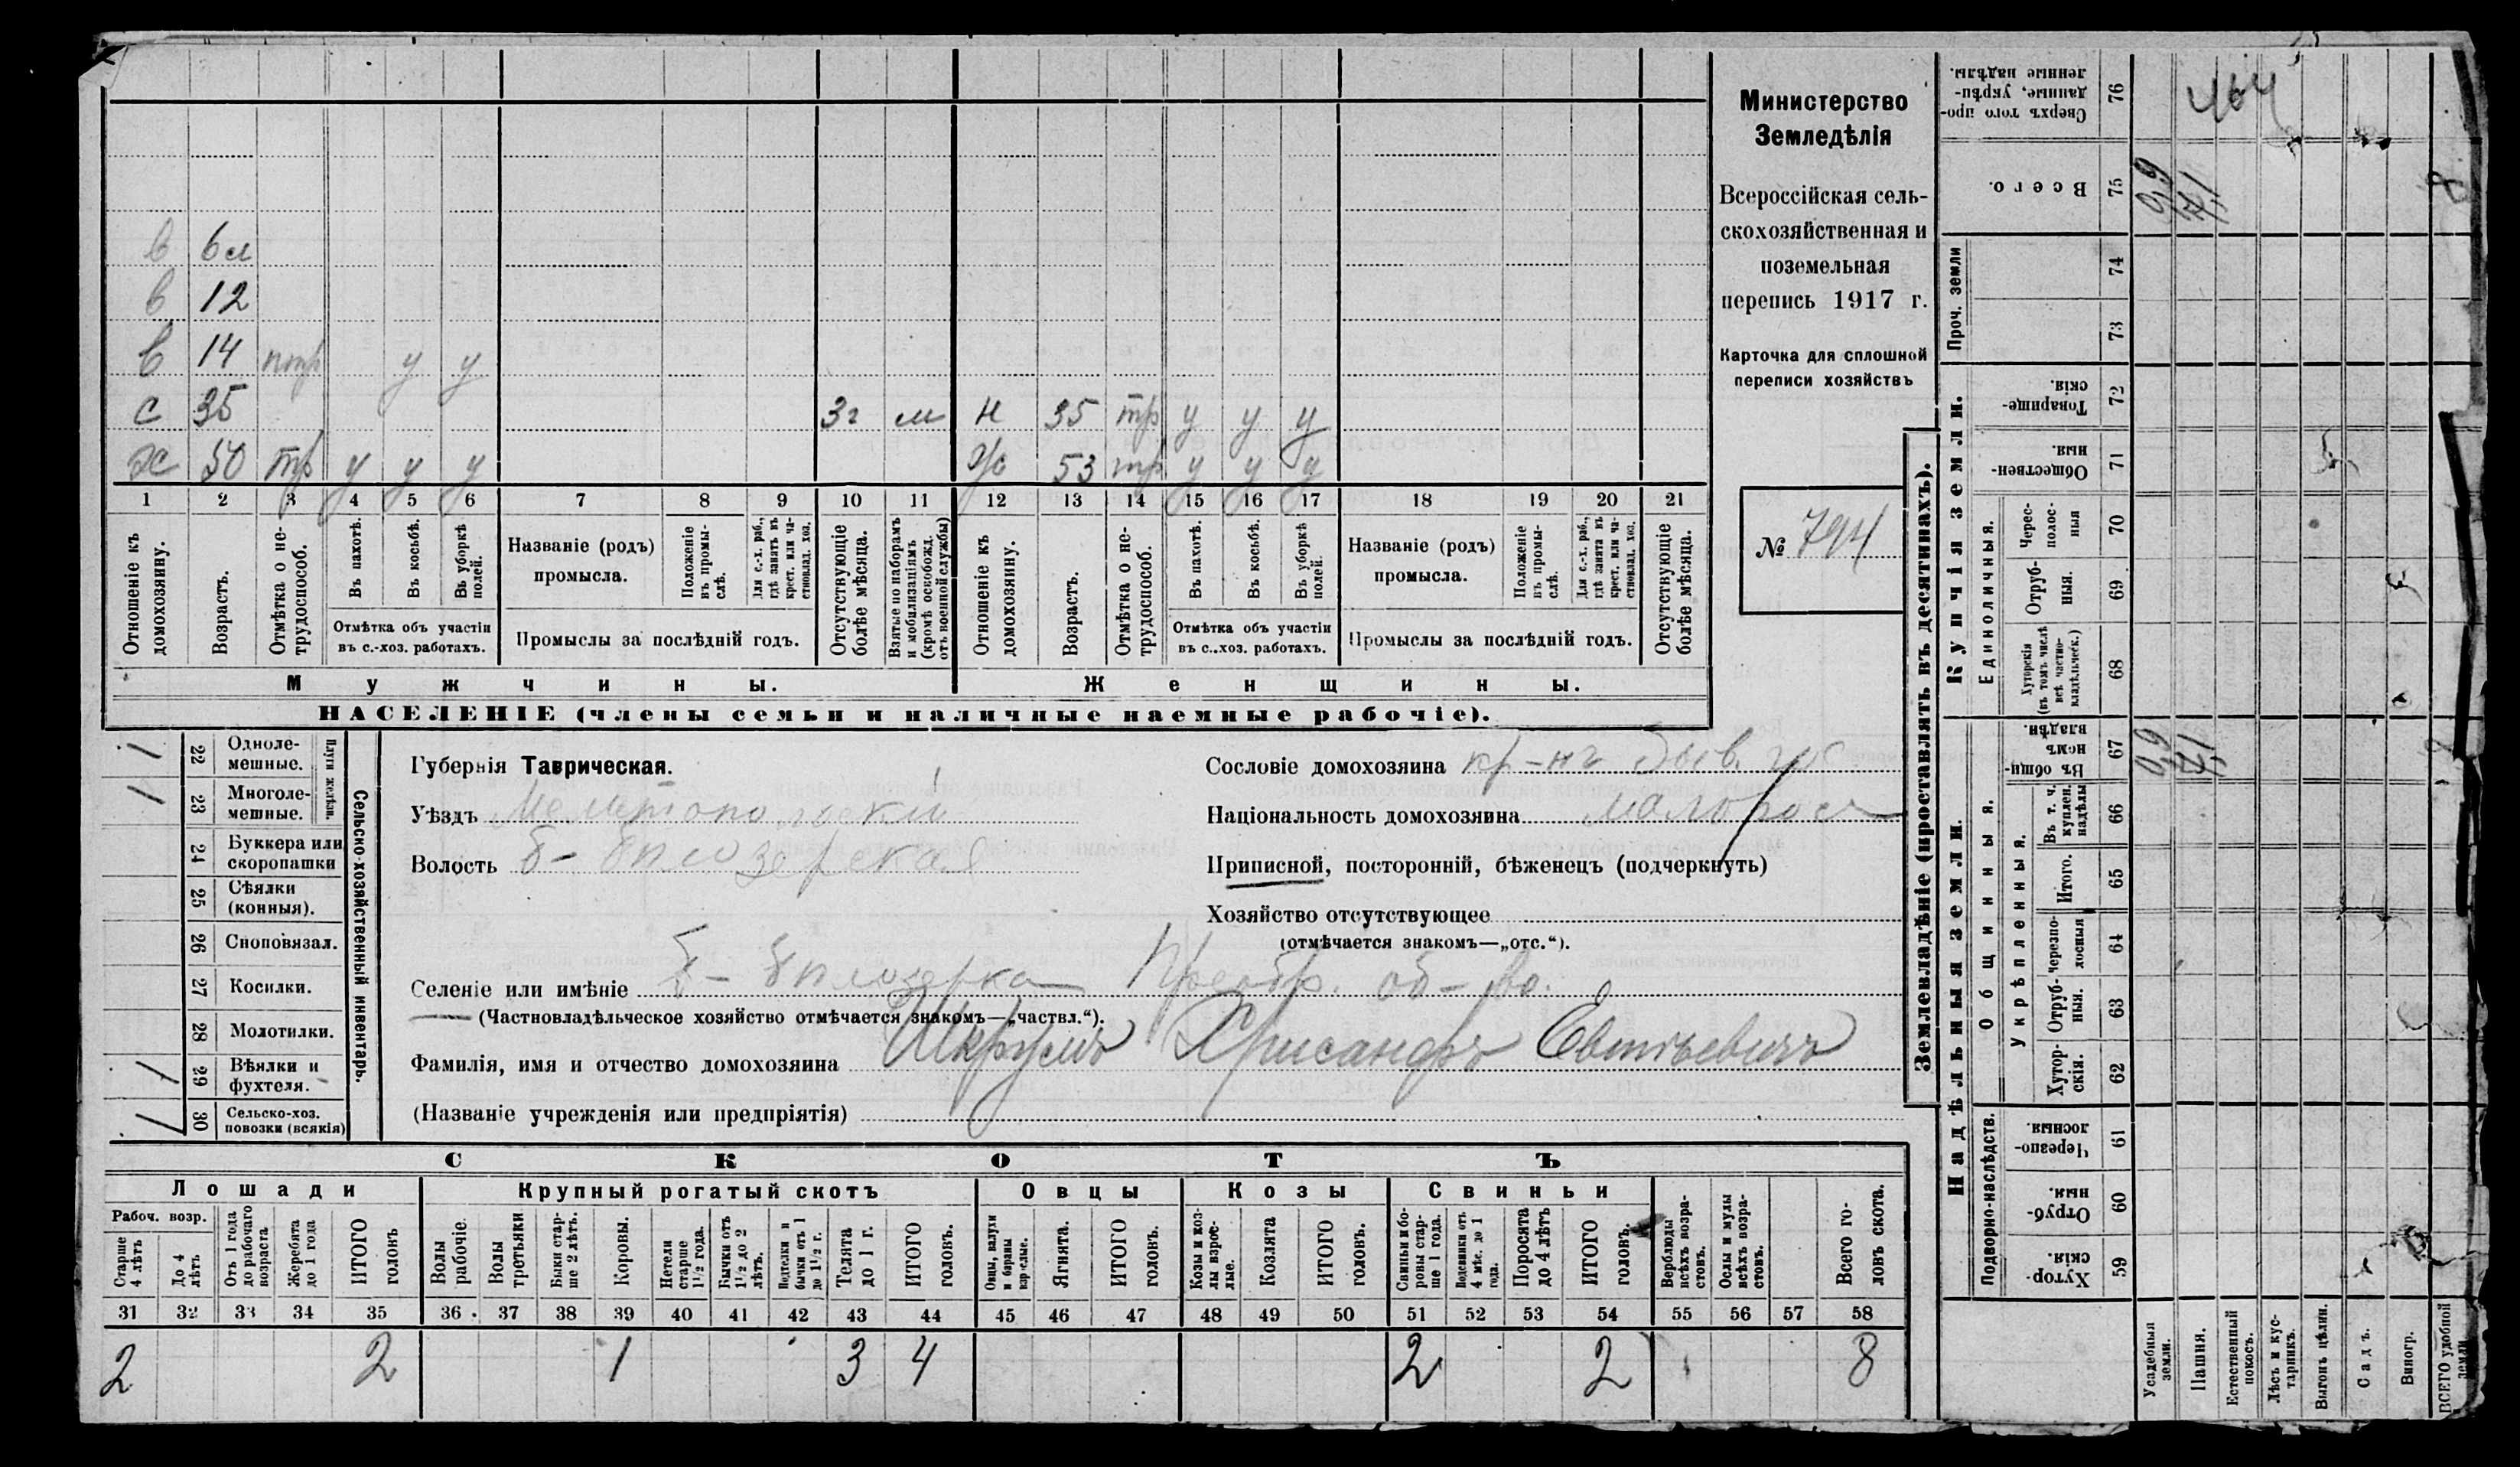 в 6 м
в 12
в 14 потр у у
с 35 3 г м н 35 тр у у у
х 50 тр у у у ж 53 тр у у у
1 2 3 4 5 6 7 8 9 10 11 12 13 14 15 16 17 18 19 20 21
Отношеніе къ домохозяину.
Возрастъ.
Отмѣтка о не-трудоспособ.
Въ пахотѣ.
Въ косьбѣ.
Въ уборкѣ полей.
Отмѣтка объ участіи въ с.-хоз. работахъ.
Названіе (родъ) промысла.
Положеніе въ промы-слѣ.
Для с.-х. раб., гдѣ занятъ въ крест. или ча-стновлад. хоз.
Промыслы за послѣдній годъ.
Отсутствующіе болѣе мѣсяца.
Взятые по наборамъ и мобилизаціямъ (кромѣ освобожд. отъ военной службы)
Отношеніе къ домохозяину.
Возрастъ.
Отмѣтка о не-трудоспособ.
Въ пахотѣ.
Въ косьбѣ.
Въ уборкѣ полей.
Отмѣтка объ участіи въ с..хоз. работахъ.
Названіе (родъ) промысла.
Положеніе въ промы-слѣ.
Для с.-х. раб., гдѣ занята въ крест. или ча-стновлад. хоз.
Промыслы за послѣдній годъ.
Отсутствующіе болѣе мѣсяца.
Мужчины. Женщины.
НАСЕЛЕНІЕ (члены семьи и наличные наемные рабочіе).
Министерство
Земледѣлія
Всероссійская сель-
скохозяйственная и
поземельная
перепись 1917 г.
Карточка для сплошной
переписи хозяйствъ
№ 794
22 Одноле-мешные. 1
23 Многоле-мешные. 1
Плуги желѣзн.
24 Буккера или скоропашки
25 Сѣялки (конныя).
26 Сноповязал.
27 Косилки.
28 Молотилки.
29 Вѣялки и фухтеля. 1
30 Сельско-хоз. повозки (всякія) 1
Сельско-хозяйственный инвентарь.
Губернія Таврическая.
Уѣздъ Мелитопольскій
Волость Б-Бѣлозерская
Сословіе домохозяина кр-нъ быв. гос
Національность домохозяина малоросс
Приписной, посторонній, бѣженецъ (подчеркнуть)
Хозяйство отсутствующее
(отмѣчается знакомъ—„отс.“).
Селеніе или имѣніе Б-Бѣлозерка Преобр. об-во.
(Частновладѣльческое хозяйство отмѣчается знакомъ—„частвл.“).
Фамилія, имя и отчество домохозяина Хрисанфъ Евтіевичъ
(Названіе учрежденія или предпріятія)
СКОТЪ
Лошади Крупный рогатый скотъ Овцы Козы Свиньи
Рабоч. возр.
Старше 4 лѣтъ
До 4 лѣтъ
Отъ 1 года до рабочаго возраста
Жеребята до 1 года
ИТОГО головъ
Волы рабочіе.
Волы третьяки
Быки стар-ше 2 лѣтъ.
Коровы.
Нетели старше 1½ года.
Бычки отъ 1½ до 2 лѣтъ.
Подтелки и бычки отъ 1 до 1½ г.
Телята до 1 г.
ИТОГО головъ.
Овцы, валухи и бараны взрослые.
Ягнята.
ИТОГО головъ.
Козы и коз-лы взрос-лые.
Козлята
ИТОГО головъ.
Свиньи и бо-ровы стар-ше 1 года.
Подсвинки отъ 4 мѣс. до 1 года.
Поросята до 4 лѣтъ
ИТОГО головъ.
Верблюды всѣхъ возра-стовъ.
Ослы и мулы всѣхъ возра-стовъ.
Всего го-ловъ скота.
31 32 33 34 35 36 37 38 39 40 41 42 43 44 45 46 47 48 49 50 51 52 53 54 55 56 57 58
2 2 1 3 4 2 2 8
Землевладѣніе (проставлять въ десятинахъ).
Надѣльныя земли. Купчія земли. Проч. земли
Подворно-наслѣдств.
Общинныя.
Укрѣпленныя.
Единоличныя.
Сверхъ того про-данные, укрѣп-ленные надѣлы. 76
Всего. 75
74
73
Товарище-скія. 72
Обществен-ныя. 71
Черес-полос-ныя 70
Отруб-ныя. 69
Хуторскія (въ томъ числѣ всѣ частно-владѣльческ.) 68
Въ общин-номъ владѣн. 67
Въ т. ч. куплен. надѣлы 66
Итого. 65
Черезпо-лосныя 64
Отруб-ныя. 63
Хутор-скія. 62
Черезпо-лосныя. 61
Отруб-ныя. 60
Хутор-скія. 59
Усадебныя земли.
Пашня.
Естественный покосъ.
Лѣсъ и кус-тарникъ.
Выгонъ цѣлин.
Садъ.
Виногр.
ВСЕГО удобной земли
8